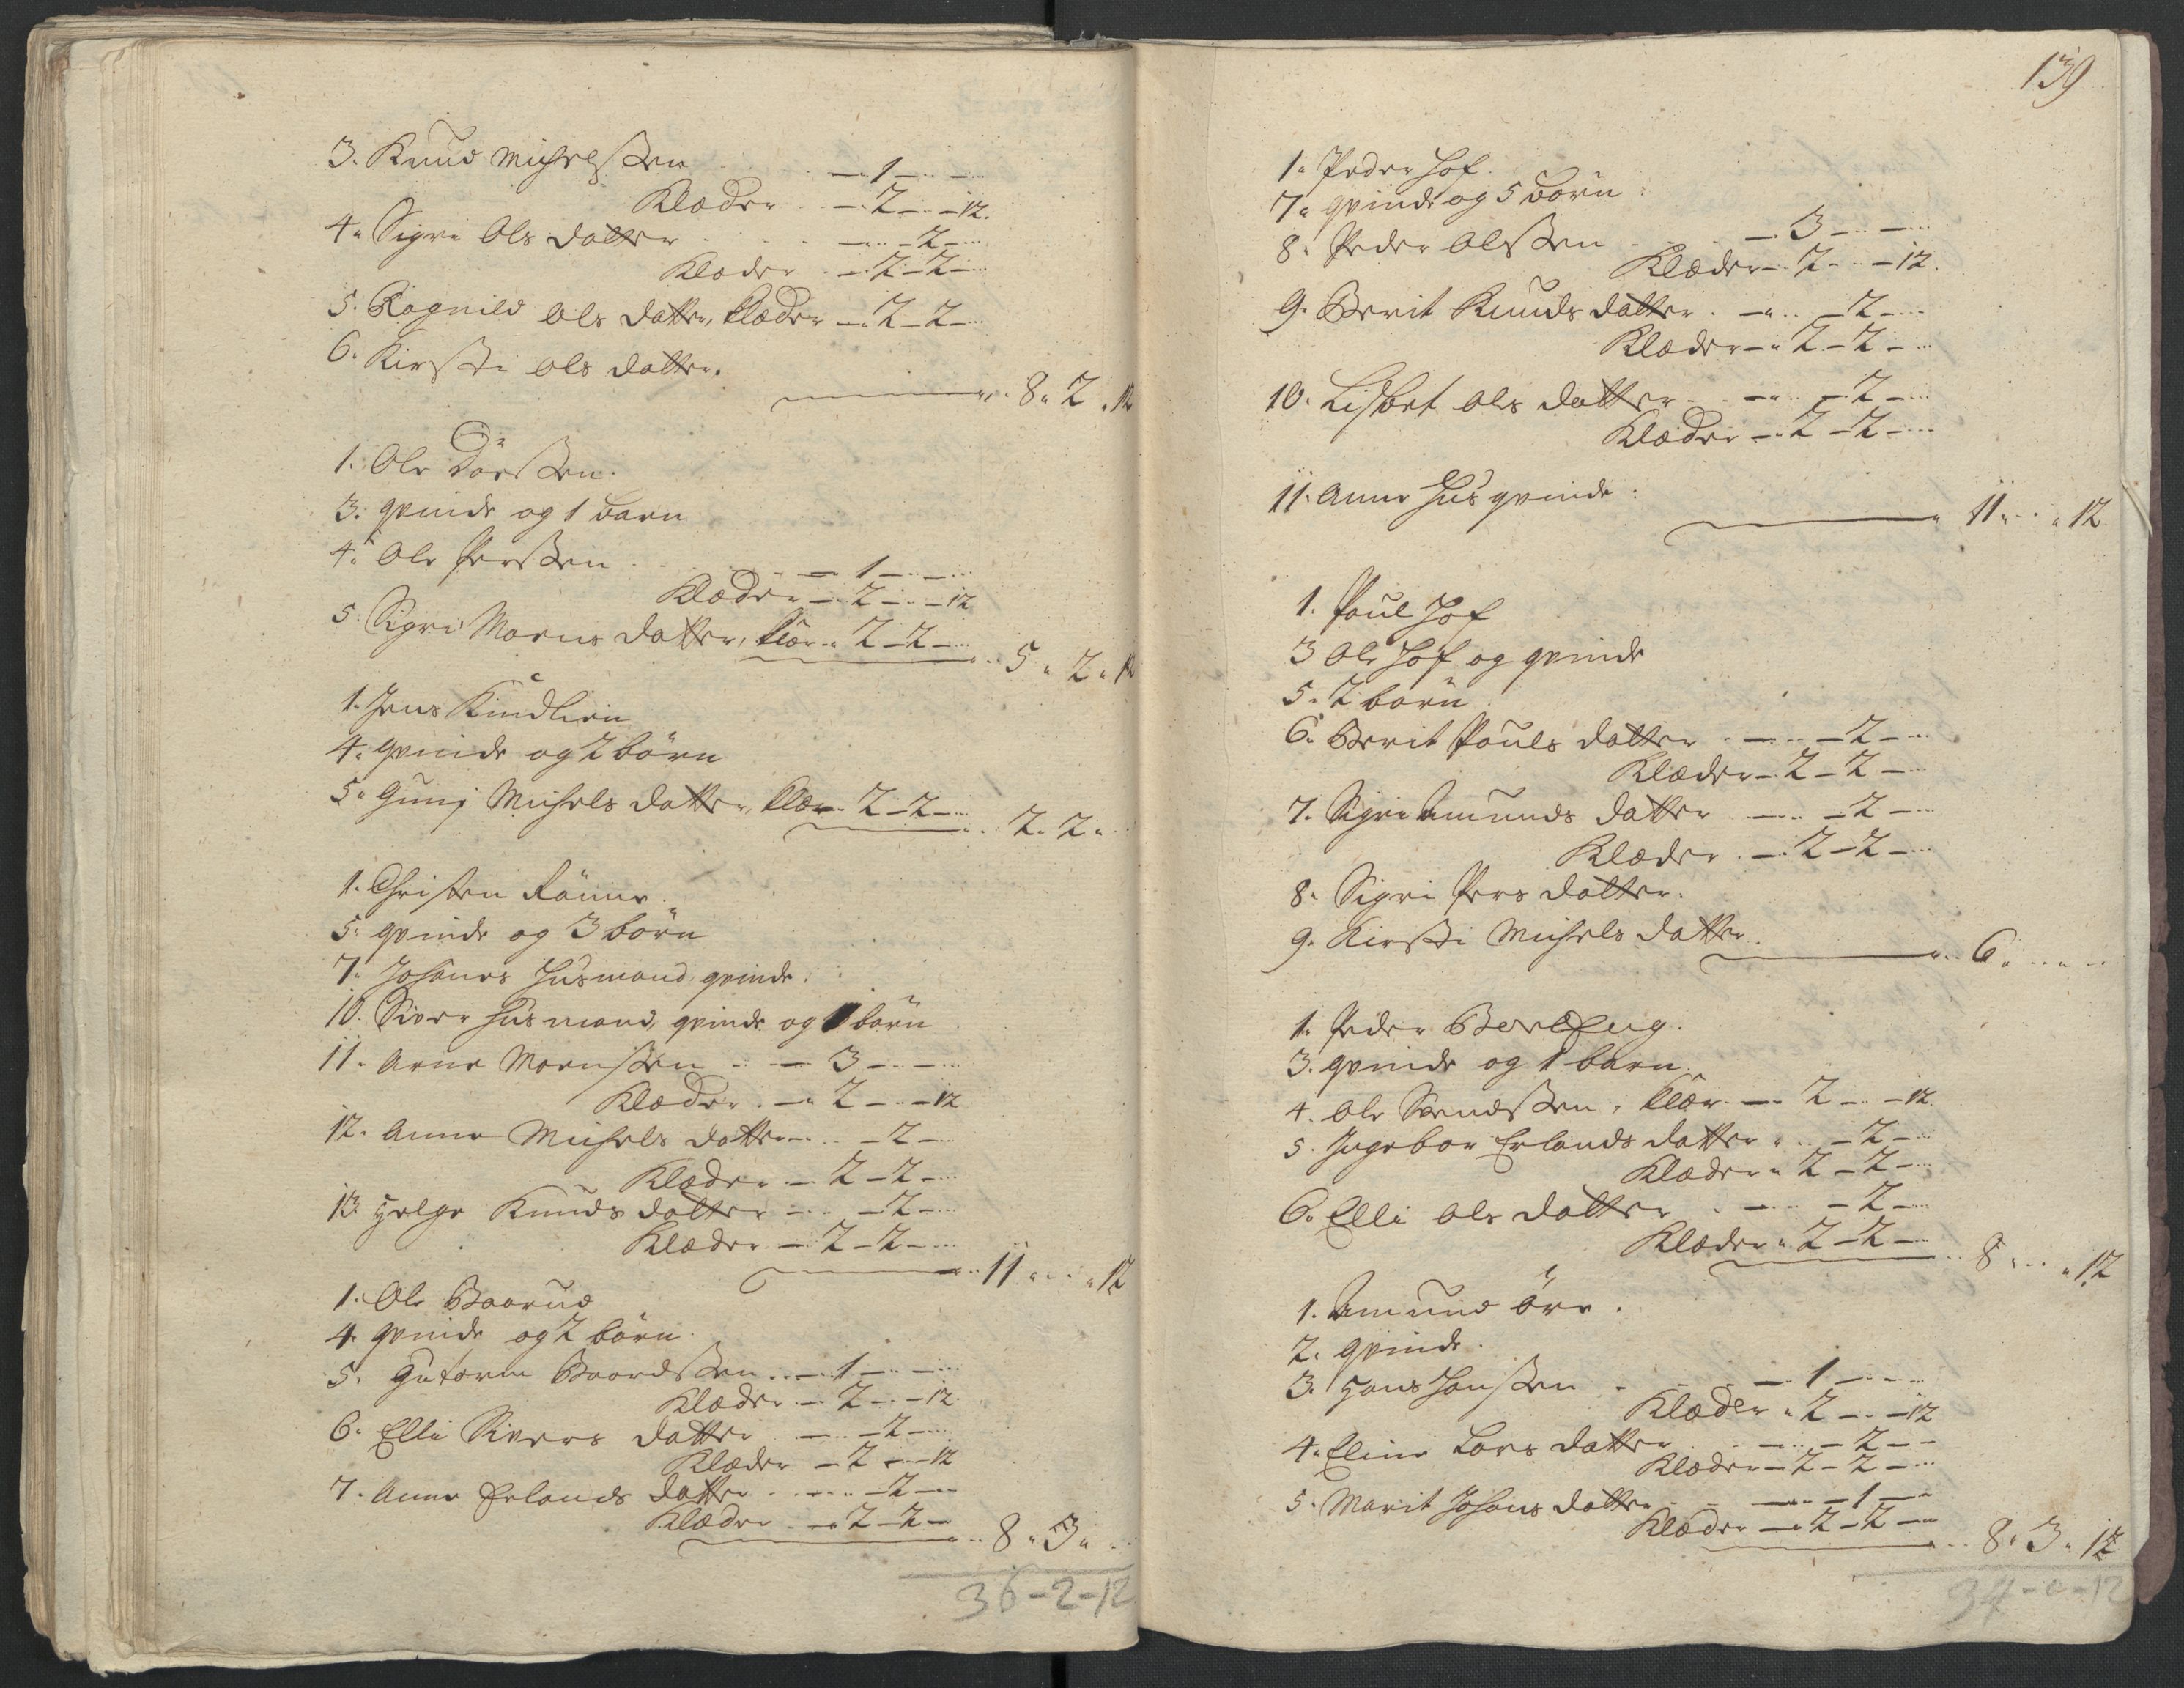 3. Knud Michelsen — 1 — —
Klæder — 2 — — 12.
4. Sigri Ols datter — — 2 —
Klæder — 2 — 2 —
5. Rognild Ols datter, klæder — 2 — 2 —
6. Kirsti Ols datter.
8. 2. 12
1. Ole
3. qvinde og 1 barn
4. Ole Persen — 1 — —
Klæder — 2 — — 12
5. Sigri Moens datter, klær 2 — 2 —
5. 2. 12
1. Jens Kindlien
4. qvinde og 2 börn
5. Gunj Michels datter, klær 2 — 2 —
2. 2.
1. Christen Rönne.
5. qvinde og 3 börn
7. Johanes Husmand, qvinde.
10. Siver Husmand, qvinde og 1 börn
11. Arne Moensen — 3 — —
Klæder — 2 — — 12
12. Anne Michels datter — — 2 —
Klæder — 2 — 2 —
13. Helge Knuds datter — — 2 —
Klæder — 2 — 2 —
11. . 12
1. Ole Baarud
4. qvinde og 2 börn.
5. Gutorm Baardsen — 1 — —
Klæder — 2 — — 12.
6. Elli Sivers datter — — 2 —
Klæder — 2 — — 12
7. Anne Erlands datter — — 2 —
Klæder — 2 — 2 —
8. 3.
36-2-12
139
1. Peder Hof.
7. qvinde og 5 börn
8. Peder Olsen — 3 — —
Klæder — 2 — — 12.
9. Berit Knuds datter — — 2 —
Klæder — 2 — 2 —
10. Lisbet Ols datter — — 2 —
Klæder — 2 — 2 —
11. Anne Husqvinde:
11. . 12
1. Poul Hof
3 Ole Hof og qvinde
5. 2 börn.
6. Berit Pouls datter — — 2 —
Klæder — 2 — 2 —
7. Sigri Amunds datter — — 2 —
Klæder — 2 — 2 —
8. Sigri Pers datter.
9. Kirsti Michels datter.
6.
1. Peder
3. qvinde og 1 barn.
4. Ole Svendsen, klær — 2 — — 12.
5. Ingebor Erlands datter — 2 —
Klæder 2 — 2 —
6. Elli Ols datter — — 2 —
Klæder 2 — 2 —
8. . 12
1. Amund Öve.
2. qvinde.
3. Hans Hansen — 1 — —
Klæder 2 — — 12
4. Eline Lars datter — — 2 —
Klæder — 2 — 2 —
5. Marit Johans datter — — 1 —
Klæder — 2 — 2 —
8. 3. 12
34-0-12